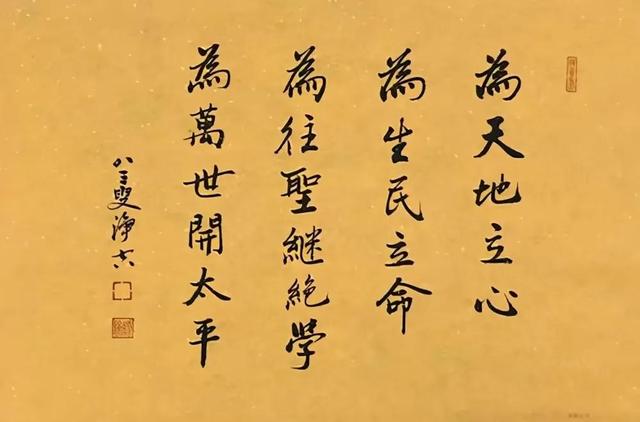 為天地立心
為生民立命
為往聖継絕學
為萬世開太平
八三叟淨空